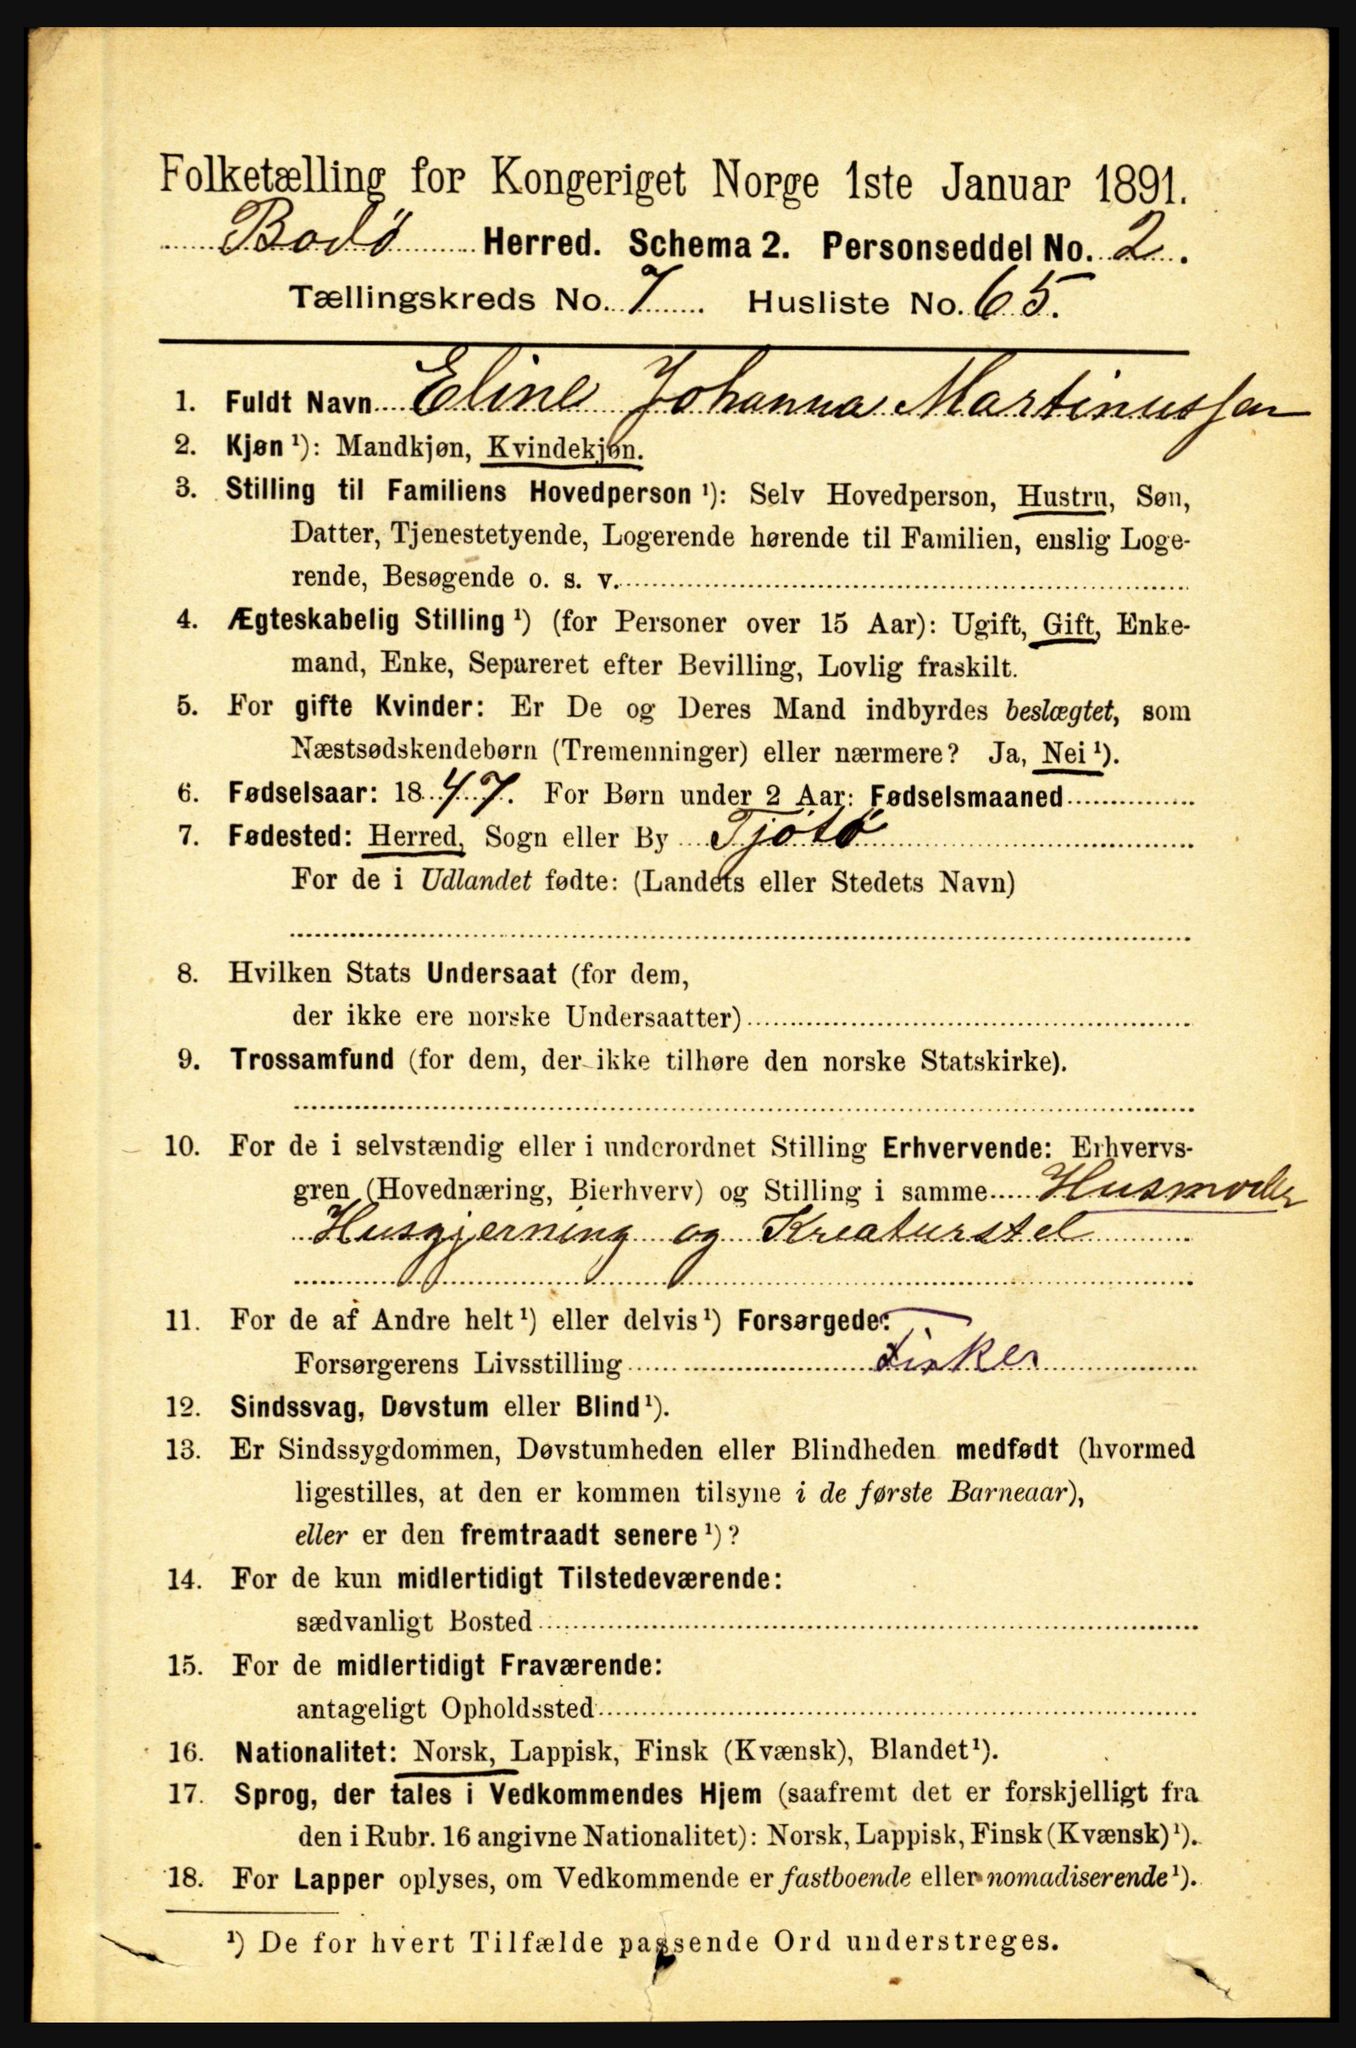 Folketælling for Kongeriget Norge 1ste Januar 1891.
Bodø Herred. Schema 2. Personseddel No. 2.
Tællingskreds No. 7 Husliste No. 65.
1. Fuldt Navn Eline Johanna Martinussen
2. Kjøn ¹): Mandkjøn, Kvindekjøn.
3. Stilling til Familiens Hovedperson ¹): Selv Hovedperson, Hustru, Søn,
Datter, Tjenestetyende, Logerende hørende til Familien, enslig Loge-
rende, Besøgende o. s. v.
4. Ægteskabelig Stilling ¹) (for Personer over 15 Aar): Ugift, Gift, Enke-
mand, Enke, Separeret efter Bevilling, Lovlig fraskilt.
5. For gifte Kvinder: Er De og Deres Mand indbyrdes beslægtet, som
Næstsødskendebørn (Tremenninger) eller nærmere? Ja, Nei ¹).
6. Fødselsaar: 1847. For Børn under 2 Aar: Fødselsmaaned
7. Fødested: Herred, Sogn eller By Tjötö
For de i Udlandet fødte: (Landets eller Stedets Navn)
8. Hvilken Stats Undersaat (for dem,
der ikke ere norske Undersaatter)
9. Trossamfund (for dem, der ikke tilhøre den norske Statskirke).
10. For de i selvstændig eller i underordnet Stilling Erhvervende: Erhvervs-
gren (Hovednæring, Bierhverv) og Stilling i samme Husmoder
Husgjerning og Kreaturstel
11. For de af Andre helt ¹) eller delvis ¹) Forsørgede:
Forsørgerens Livsstilling Fisker
12. Sindssvag, Døvstum eller Blind ¹).
13. Er Sindssygdommen, Døvstumheden eller Blindheden medfødt (hvormed
ligestilles, at den er kommen tilsyne i de første Barneaar),
eller er den fremtraadt senere ¹)?
14. For de kun midlertidigt Tilstedeværende:
sædvanligt Bosted
15. For de midlertidigt Fraværende:
antageligt Opholdssted
16. Nationalitet: Norsk, Lappisk, Finsk (Kvænsk), Blandet ¹).
17. Sprog, der tales i Vedkommendes Hjem (saafremt det er forskjelligt fra
den i Rubr. 16 angivne Nationalitet): Norsk, Lappisk, Finsk (Kvænsk) ¹).
18. For Lapper oplyses, om Vedkommende er fastboende eller nomadiserende ¹).
¹) De for hvert Tilfælde passende Ord understreges.